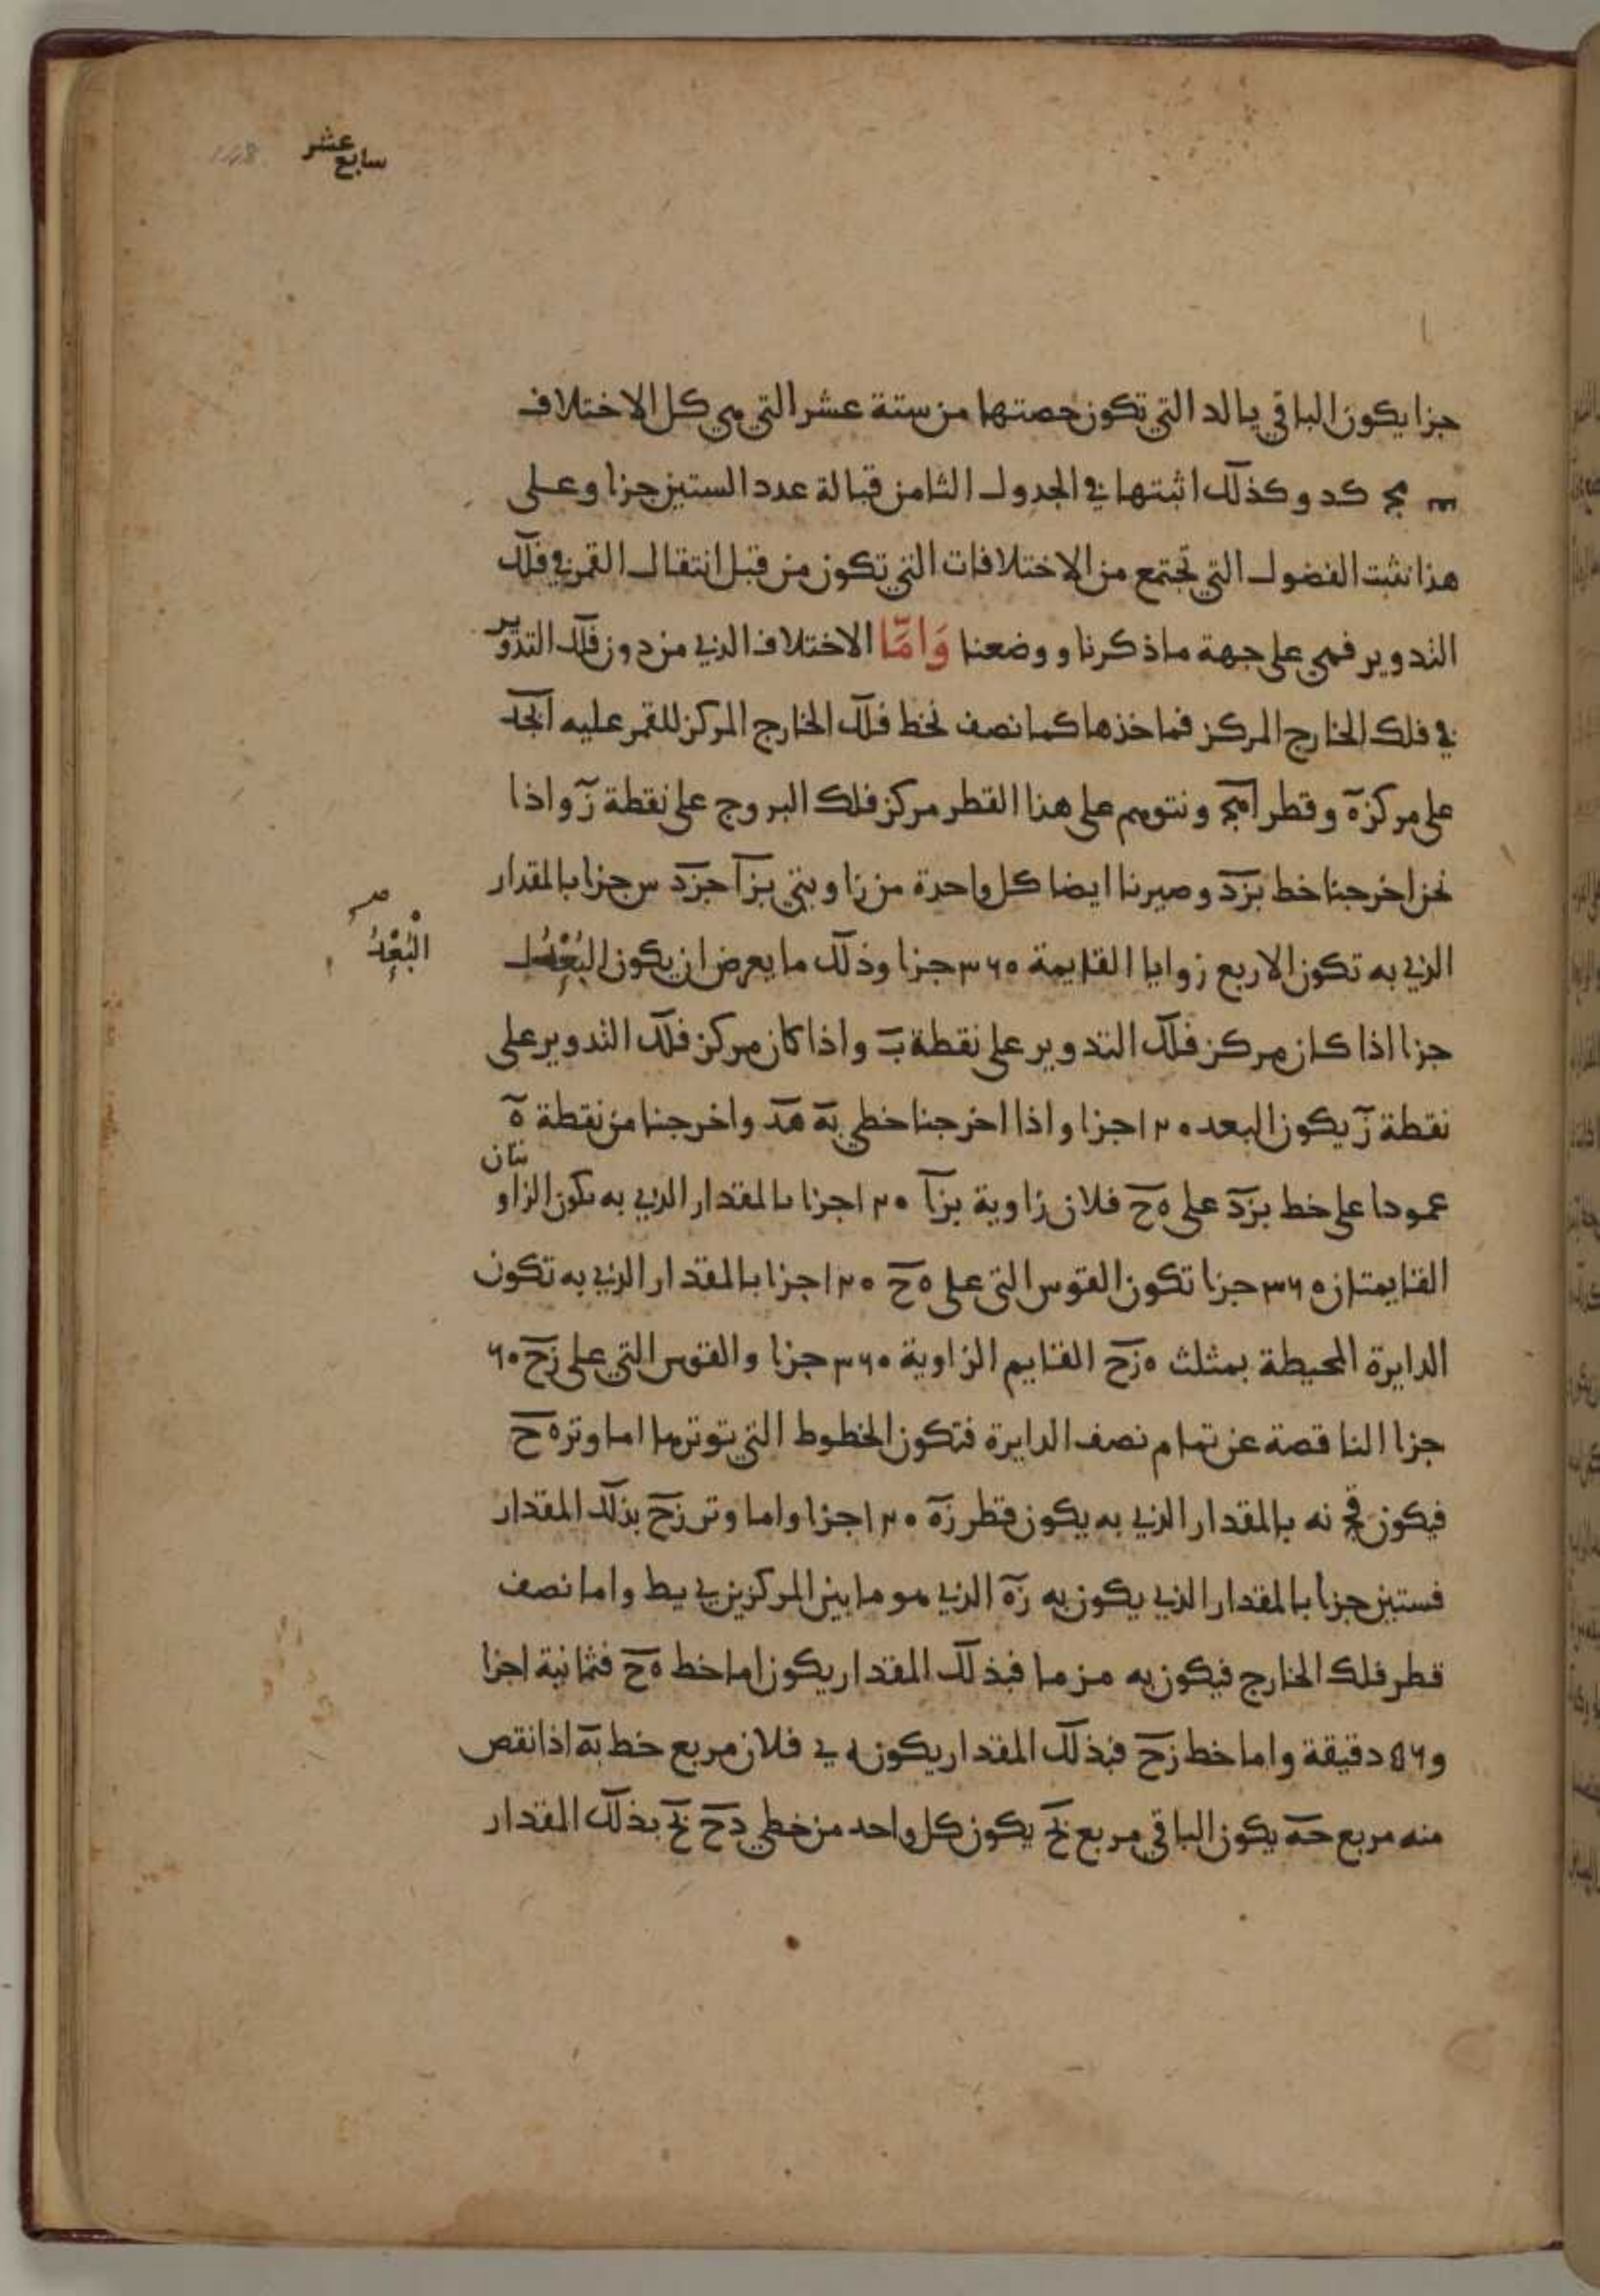 سابع عشر
جزا يكون الباقي يا لد التي تكون حصتها من ستة عشر التي هي كل الاختلاف
مج كد وكذلك اثبتها في الجدول الثامن قبالة عدد الستين جزا وعلى
هذا نثبت الفضول التي تجتمع من الاختلافات التي تكون من قبل انتقال القمر في فلك
التدوير فهي على جهة ما ذكرنا ووضعنا وَامَّا الاختلاف الذي من دون فلك التدوير
في فلك الخارج المركز فماخذها كما نصف نخط فلك الخارج المركز للقمر عليه ابجد
على مركز ه وقطر اهج ونتوهم على هذا القطر مركز فلك البروج على نقطة ز واذا
نحن اخرجنا خط بزد وصيرنا ايضا كل واحدة من زاويتي بزا جزد س جزا بالمقدار
الذي به تكون الاربع زوايا القايمة ٣٦٠ جزا وذلك ما يعرض ان يكون البُعْدُ
البُعْدُ
جزا اذا كان مركز فلك التدوير على نقطة ب واذا كان مركز فلك التدوير على
نقطة ز يكون البعد ١٢٠ جزا واذا اخرجنا خطي به هد واخرجنا من نقطة ه
عمودا على خط بزد على ه ح فلان زاوية بزا ١٢٠ جزا بالمقدار الذي به يكون الزاويتان
القايمتان ٣٦٠ جزا تكون القوس التي على ه ح ١٢٠ جزا بالمقدار الذي به تكون
الدايرة المحيطة بمثلث ه زح القايم الزاوية ٣٦٠ جزا والقوس التي على زح ٦٠
جزا الناقصة عن تمام نصف الدايرة فتكون الخطوط التي توترها اما وتر ه ح
فيكون قج نه بالمقدار الذي به يكون قطر زه ١٢٠ جزا واما وتر زح بذلك المقدار
فستين جزا بالمقدار الذي يكون به زه الذي هو ما بين المركزين ي يط واما نصف
قطر فلك الخارج فيكون به مط ما فبذلك المقدار يكون اما خط ه ح فثمانية اجزا
و٥٦ دقيقة واما خط زح فبذلك المقدار يكون ه ي فلان مربع خط به اذا نقص
منه مربع حه يكون الباقي مربع بح يكون كل واحد من خطي دح بح بذلك المقدار